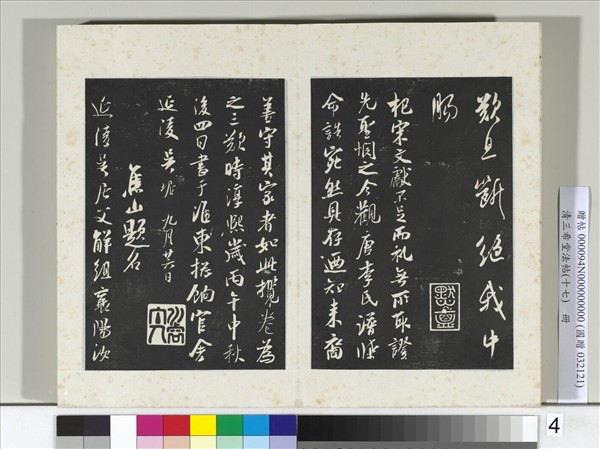 歎息斷絕我中
腸
杞宋文獻不足而礼無所取證
先聖憫之今觀唐李氏譜牒
命誥宛然具存迺知來裔
善守其家者如此攬卷為
之三歎時淳熙歲丙午中秋
後四日書于淮東總餉官舍
延陵吳琚 九月廿日
焦山題名
延陵吳居父解組襄陽汝
贈帖 000094N000000000 (國贈 032121)
清三希堂法帖(十七) 冊
4